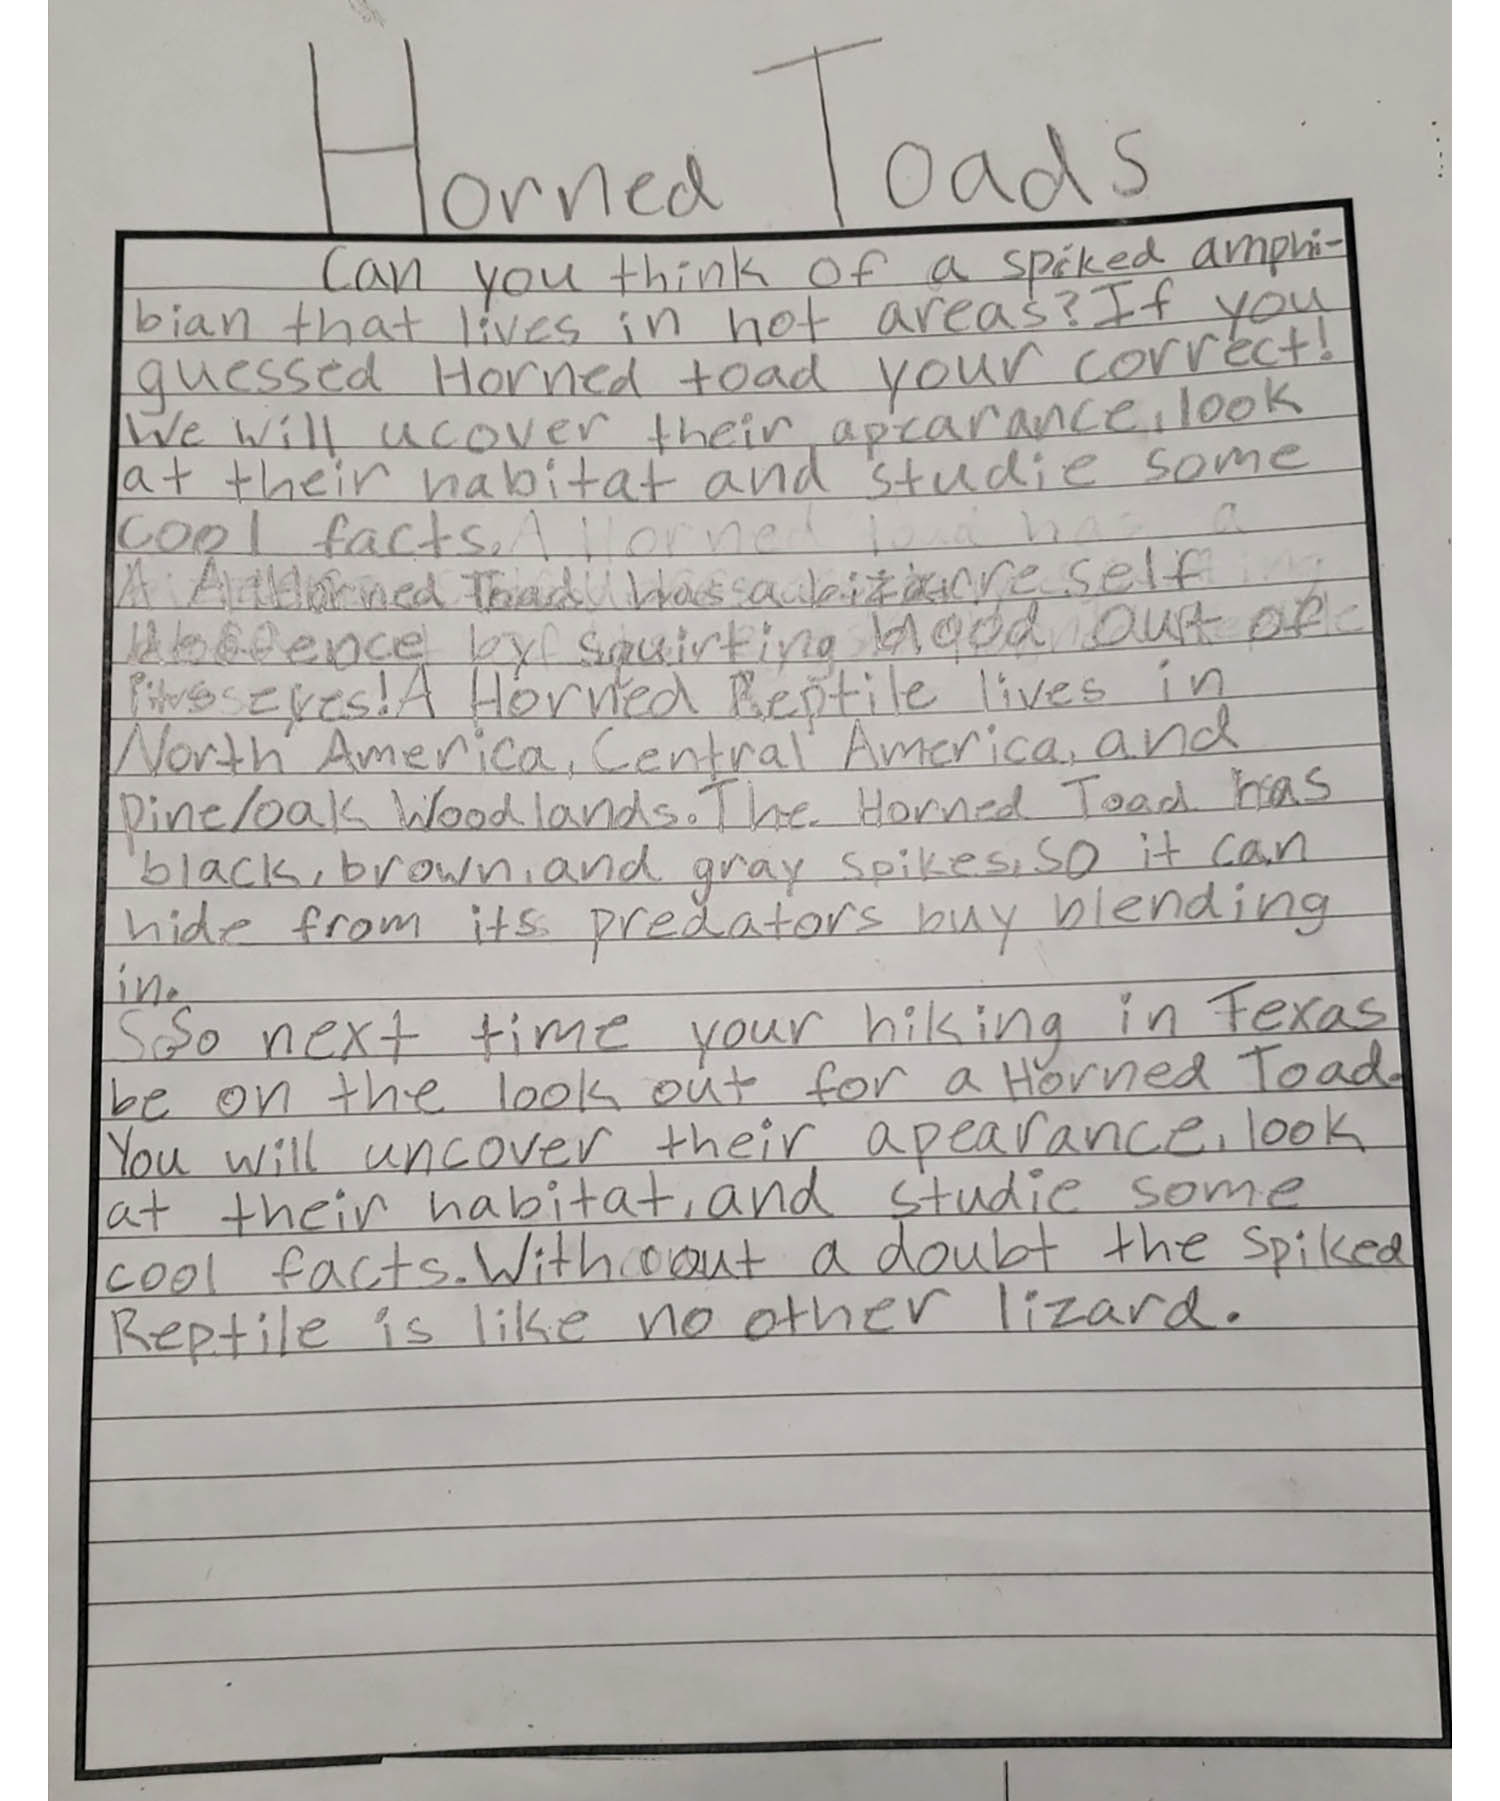 Horned Toads
Can you think of a spiked amphi-
bian that lives in hot areas? If you
guessed Horned toad your correct!
We will ucover their apearance, look
at their habitat and studie some
cool facts. A Horned Toad has a
A Horned Toad has a bizarre self
defence by squirting blood out of
its eyes! A Horned Reptile lives in
North America, Central America, and
pine/oak Woodlands. The Horned Toad has
black, brown, and gray spikes, so it can
hide from its predators buy blending
in.
So next time your hiking in Texas
be on the look out for a Horned Toad.
You will uncover their apearance, look
at their habitat, and studie some
cool facts. Without a doubt the spiked
Reptile is like no other lizard.